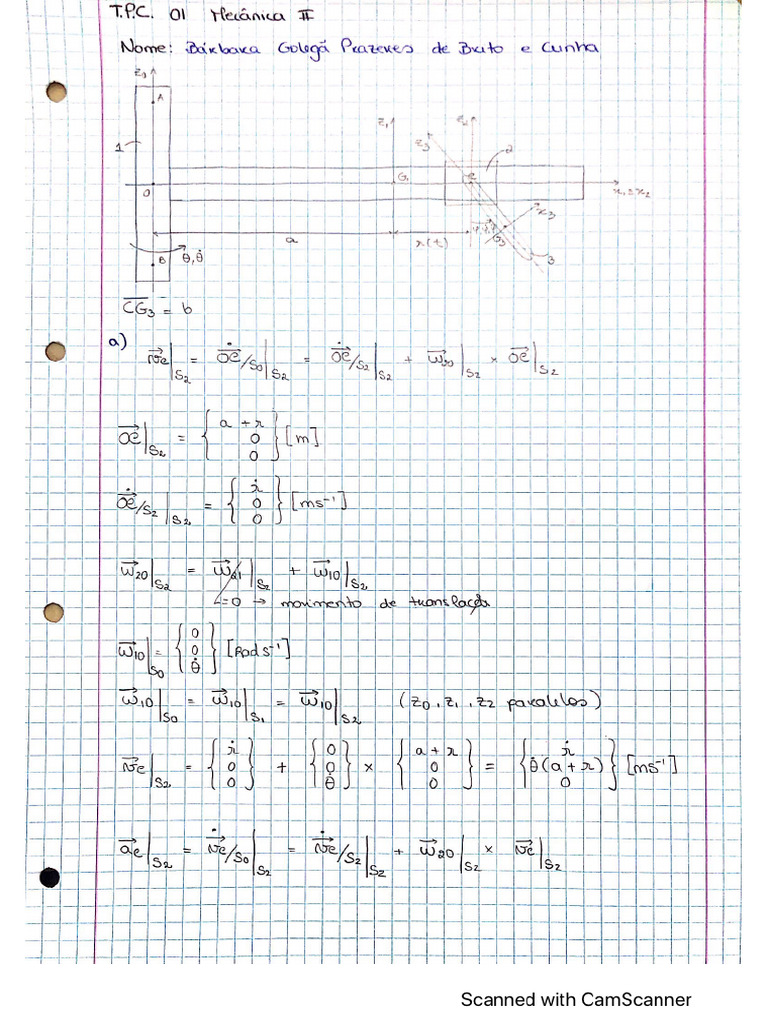 T.P.C. 01 Mecânica II
Nome: Bárbara Golegã Prazeres de Brito e Cunha
z₀
A
1
O
B
θ, θ̇
a
z₁
G₁
z₃
z₂
2
C
x₁≡x₂
x(t)
x₃
G₃
3
CG₃ = b
a) v⃗c|S₂ = ȮC⃗/S₀|S₂ = ȮC⃗/S₂|S₂ + ω⃗₂₀|S₂ × OC⃗|S₂
OC⃗|S₂ = {a + x  0  0} [m]
ȮC⃗/S₂|S₂ = {ẋ  0  0} [ms⁻¹]
ω⃗₂₀|S₂ = ω⃗₂₁|S₂ + ω⃗₁₀|S₂
=0 → movimento de translação
ω⃗₁₀|S₀ = {0  0  θ̇} [Rad s⁻¹]
ω⃗₁₀|S₀ = ω⃗₁₀|S₁ = ω⃗₁₀|S₂ (z₀, z₁, z₂ paralelos)
v⃗c|S₂ = {ẋ  0  0} + {0  0  θ̇} × {a + x  0  0} = {ẋ  θ̇(a + x)  0} [ms⁻¹]
a⃗c|S₂ = v̇⃗c/S₀|S₂ = v̇⃗c/S₂|S₂ + ω⃗₂₀|S₂ × v⃗c|S₂
Scanned with CamScanner